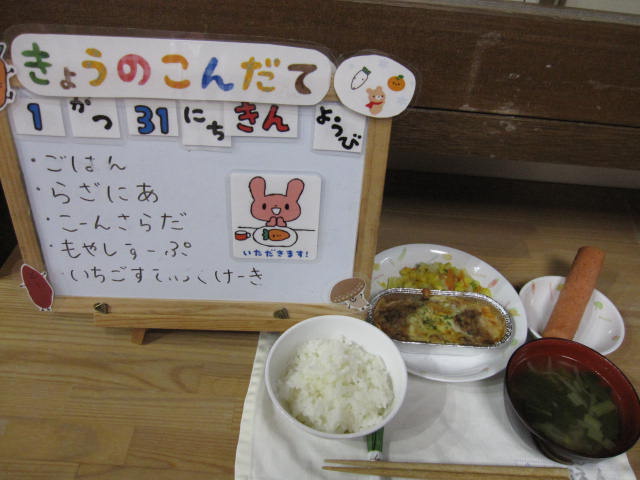 きょうのこんだて
1 がつ 31 にち きん ようび
・ごはん
・らざにあ
・こーんさらだ
・もやしすーぷ
・いちごすてぃっくけーき
いただきます!